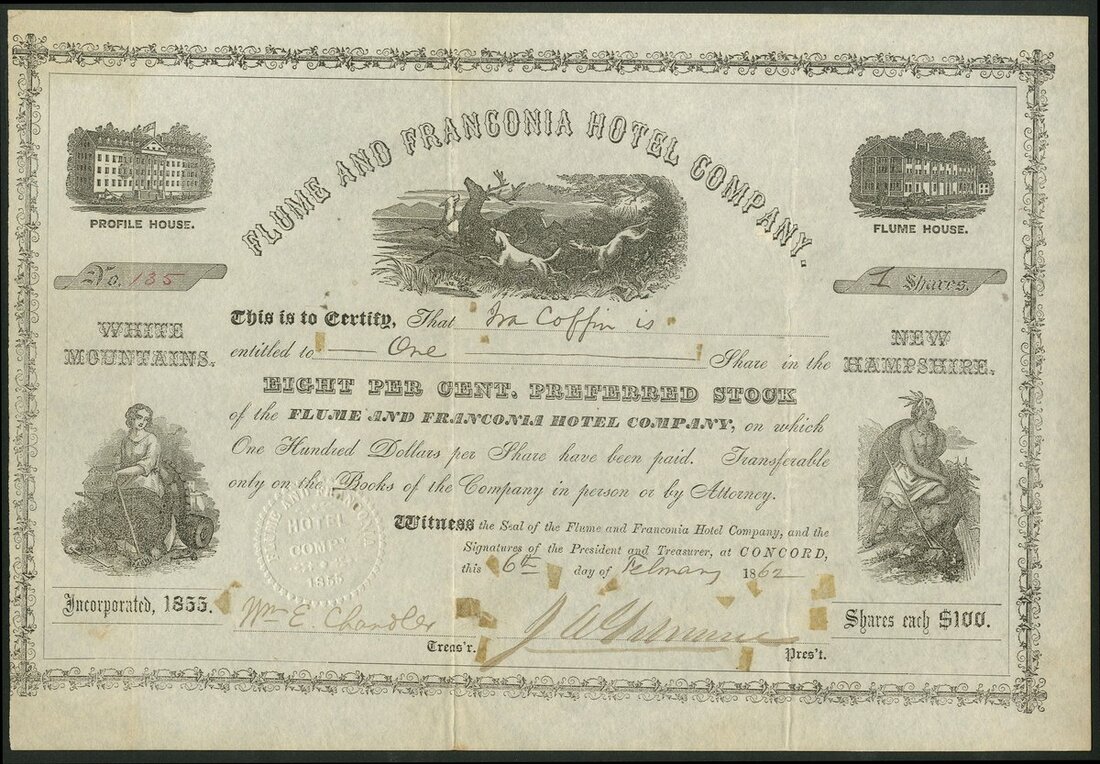 FLUME AND FRANCONIA HOTEL COMPANY.
PROFILE HOUSE.
FLUME HOUSE.
No. 135
1 Shares.
WHITE
MOUNTAINS.
NEW
HAMPSHIRE.
This is to Certify, That Ira Coffin is
entitled to One Share in the
EIGHT PER CENT. PREFERRED STOCK
of the FLUME AND FRANCONIA HOTEL COMPANY, on which
One Hundred Dollars per Share have been paid. Transferable
only on the Books of the Company in person or by Attorney.
Witness the Seal of the Flume and Franconia Hotel Company, and the
Signatures of the President and Treasurer, at CONCORD,
this 6th day of February 1862
FLUME AND FRANCONIA
HOTEL
COMPY
1855
Incorporated, 1855.
Shares each $100.
Wm E. Chandler
Treas'r.
Pres't.